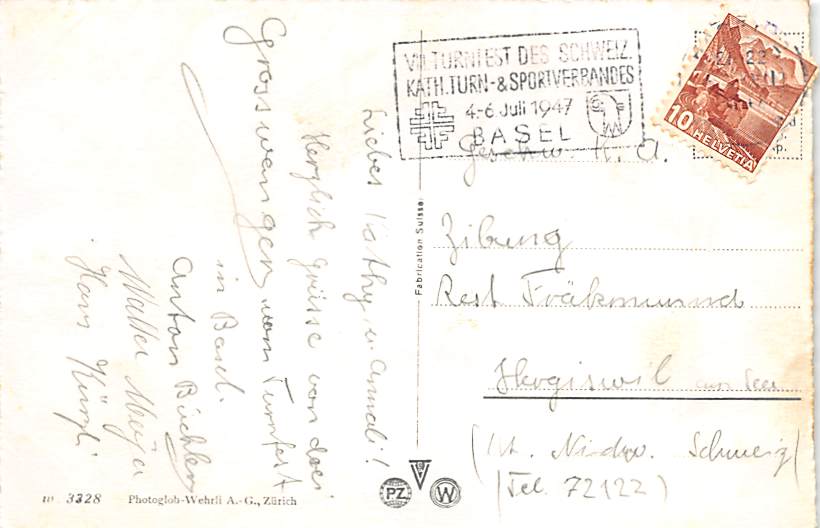 VII. TURNFEST DES SCHWEIZ.
KATH. TURN- & SPORTVERBANDES
4.-6. Juli 1947
BASEL
10 HELVETIA
Geschw. K. A.
Zibung
Rest. Fräkmuund
Hergiswil am See
(Kt. Nidw. Schweiz)
(Tel. 72122)
Liebes Kathy u. Annali!
Herzlich Grüsse von drei
Grosswanger vom Turnfest
in Basel.
Anton Büchler
Walter Meyer
Hans Künzli
Fabrication Suisse
PZ
W
10 3328 Photoglob-Wehrli A.-G., Zürich